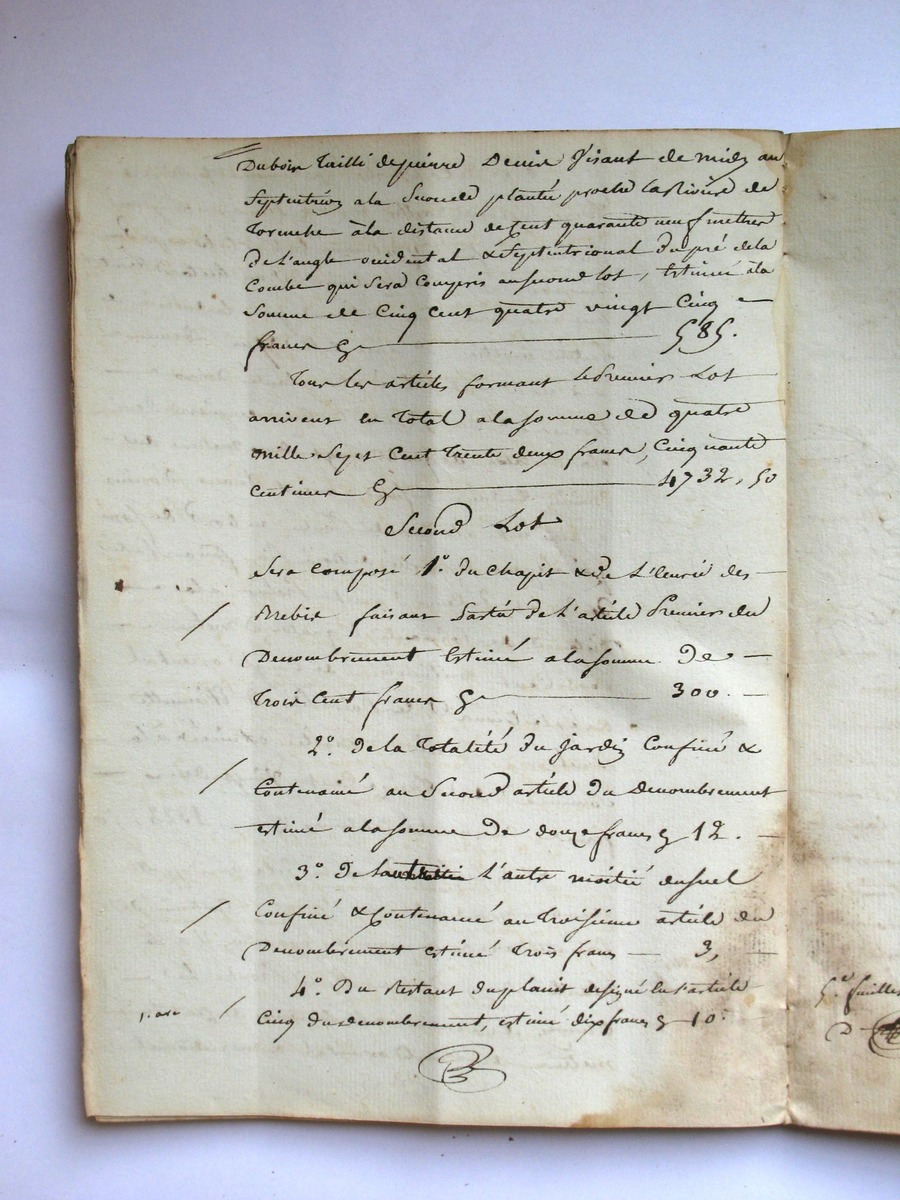 Du bois taillé de pierre Denis visant de midy au
Septentrion a la Seconde plantée proche la Rivière de
à la distance de Cent quarante neuf mettres
de l'angle occidental & Septentrional du pré de la
Combe qui Sera Compris au second lot, Estimée à la
Somme de Cinq Cent quatre vingt Cinq
francs 585.
Tous les articles formant le Premier Lot
arrivent en Total a la somme de quatre
mille Sept Cent Trente deux francs, Cinquante
Centimes 4732, 50
Second Lot
Sera Composé 1° du Chapit & de L'Ecurie des
Brebis faisant Partie de L'article Premier du
Denombrement Estimé a la somme De
Trois Cent francs 300.
2°. de la Totalité du Jardin Confiné &
Contenancé au Second article du Denombrement
estimé a la somme De douze francs 12.
3°. de L'autre moitié du
Confiné & Contenancé au Troisième article du
Denombrement estimé Trois francs 3,
4°. Du Restant du désigné en l'article
Cinq du denombrement, estimé dix francs 10.
1. are
5.e feuillet